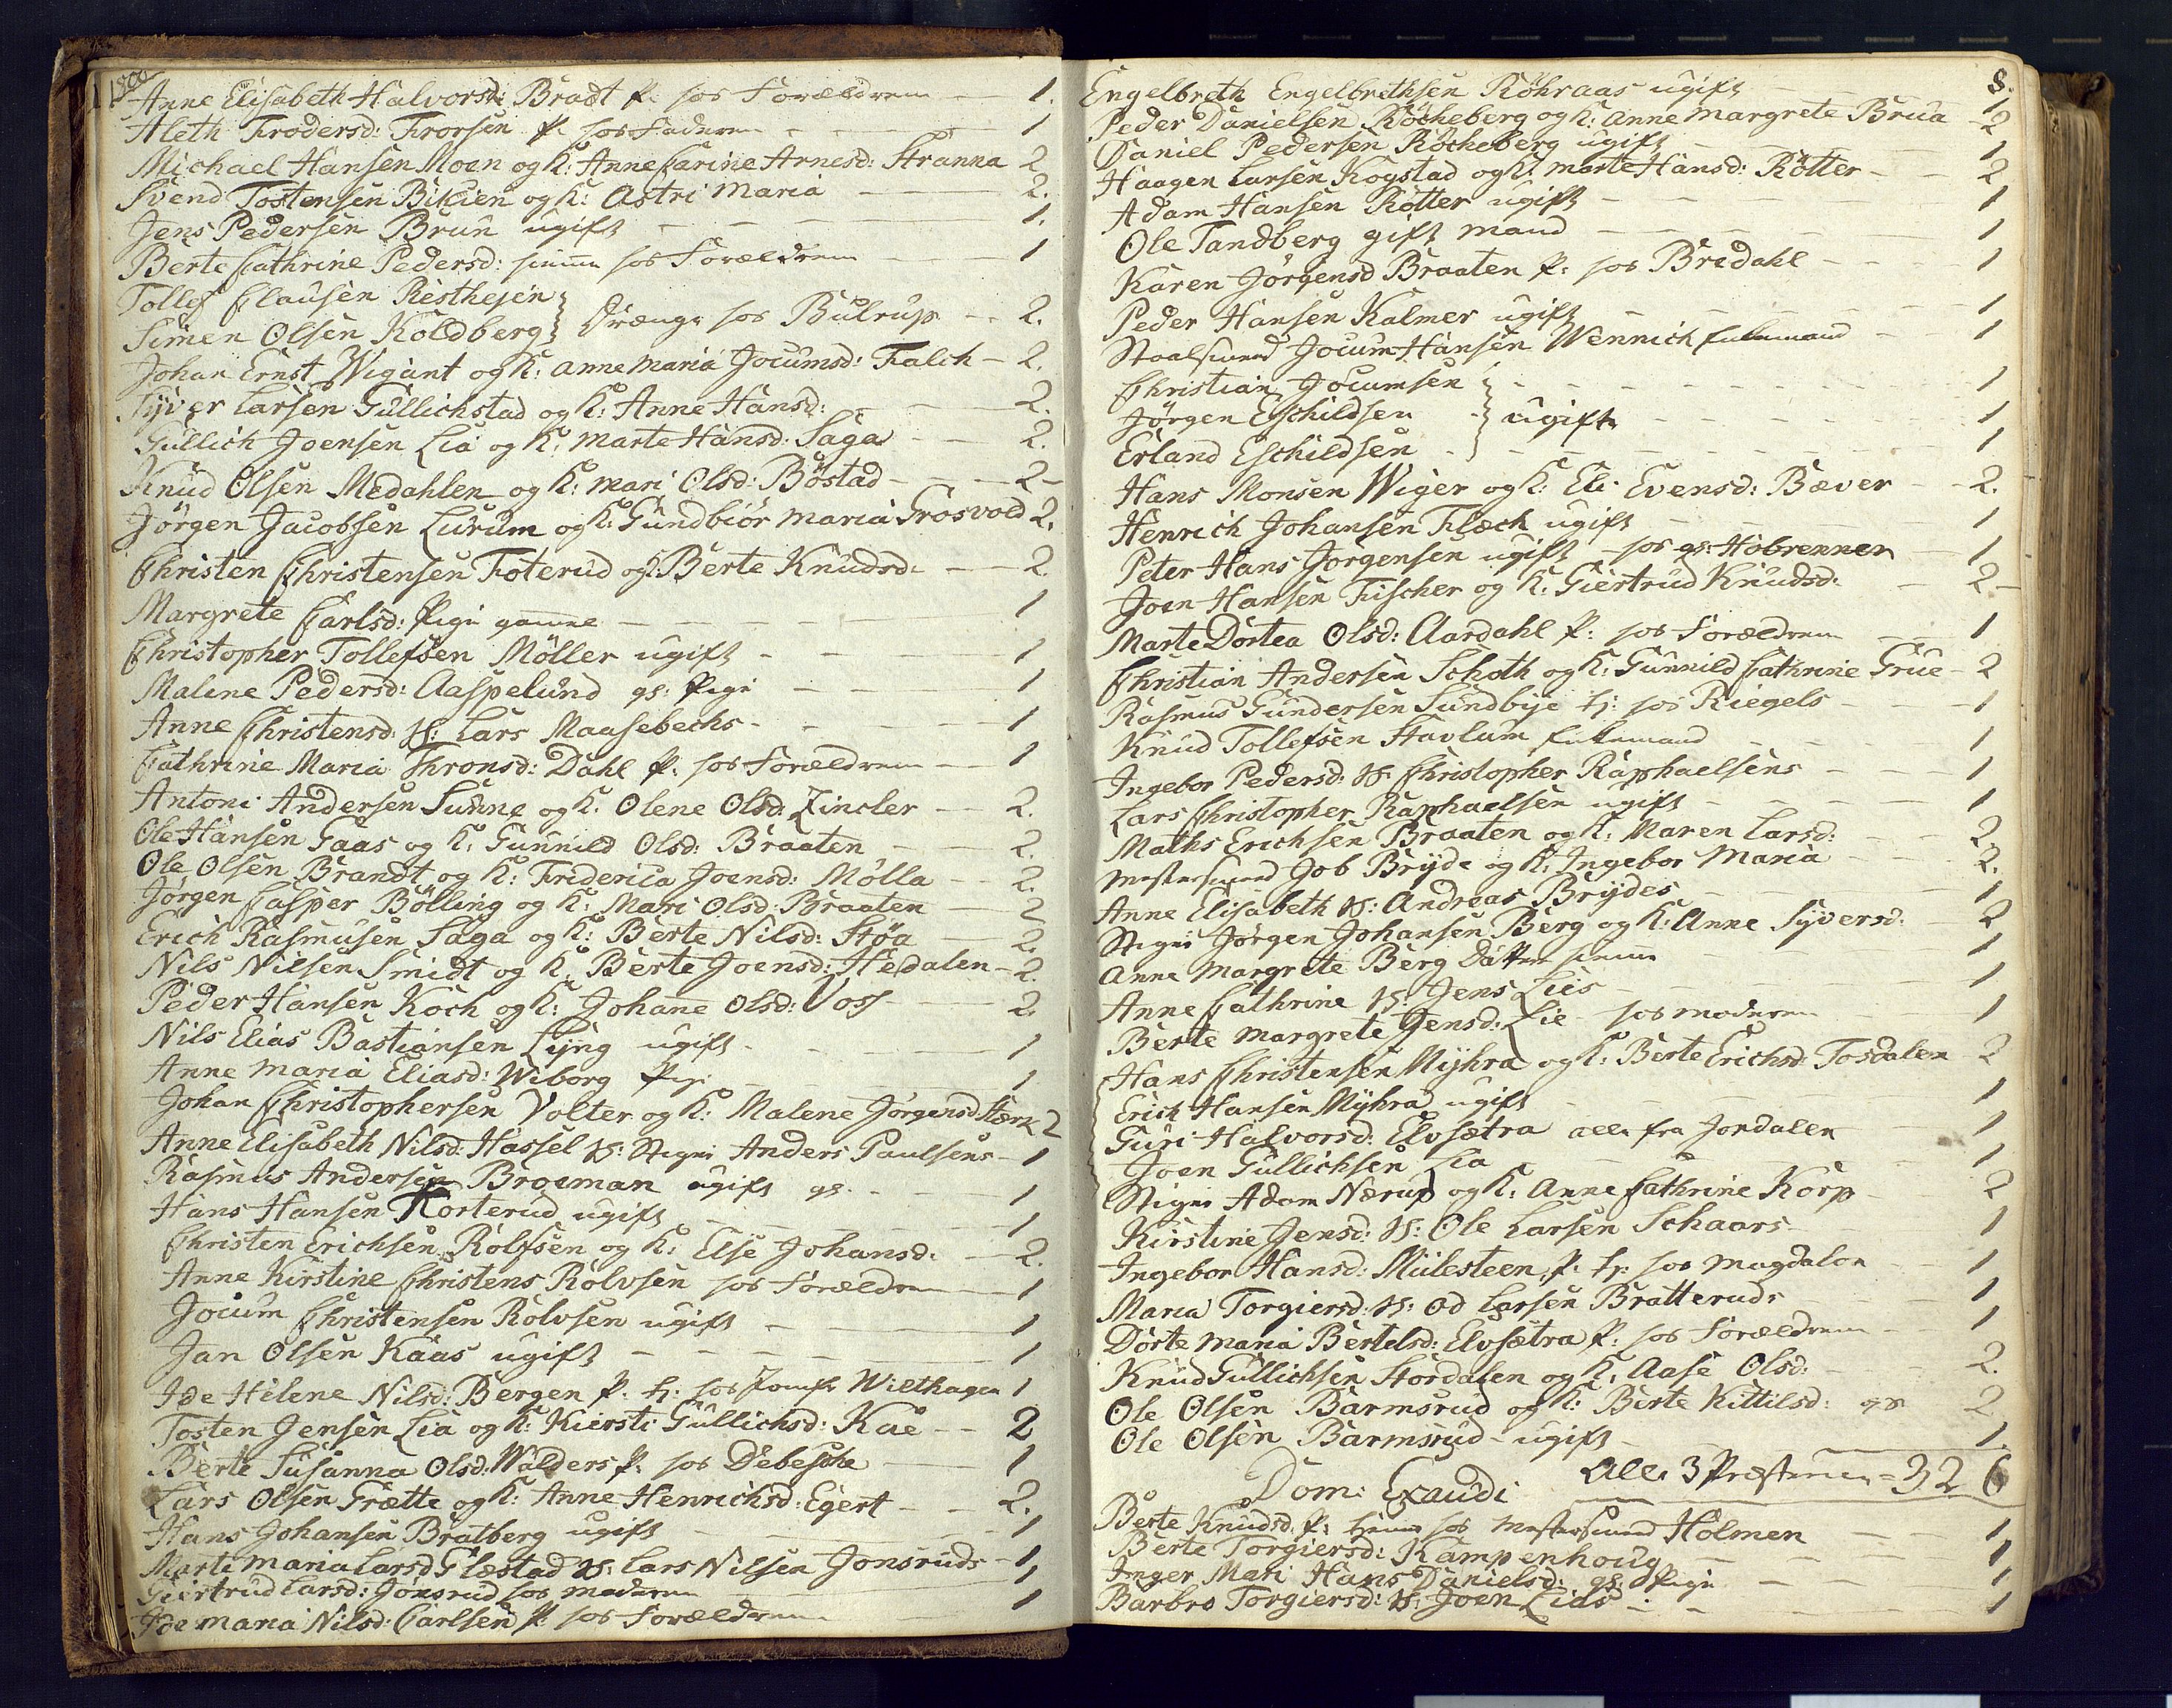 1800
Anne Elisabeth Halvorsd: Bradt P. hos Forældrene — 1.
Aleth Frodersd: Frorsen P. hos Faderen — 1
Michael Hansen Moen og K: Anne Carine Arnesd: Stranna 2
Svend Tostensen Bikien og K: Astri Maria — 2.
Jens Pedersen Brun ugift — 1.
Berte Cathrine Pedersd: hiemme hos Forældrene — 1
Tollef Clausen Resthejen
Simen Olsen Koldberg } Drænge hos Bulrup — 2.
Johan Ernst Wigant og K: Anne Maria Jocumsd: Falck — 2.
Syver Larsen Gullichstad og K: Anne Hansd: — 2.
Gullich Joensen Lia og K: Marte Hansd: Saga — 2.
Knud Olsen Medahlen og K: Mari Olsd: Böstad — 2
Jörgen Jacobsen Lurum og K: Gundbiör Maria Grosvold 2.
Christen Christensen Foterud og K: Berte Knudsd: — 2.
Margrete Carlsd: Pige gamme — 1
Christopher Tollefsen Möller ugift — 1
Malene Pedersd: Aaspelund gl: Pige — 1
Anne Christensd: H: Lars Maasebechs — 1
Cathrine Maria Thronsd: Dahl P. hos Forældrene — 1
Antoni Andersen Sunne og K: Olene Olsd: Zincler — 2.
Ole Hansen Gaas og K: Gunnild Olsd: Braaten — 2.
Ole Olsen Brandt og K: Friderica Joensd: Mölla — 2.
Jörgen Casper Bölling og K: Mari Olsd: Braaten — 2
Erich Rasmusen Saga og K: Berte Nilsd: Stöa — 2.
Nils Nilsen Smidt og K: Berte Joensd: Hedalen — 2.
Peder Hansen Koch og K: Johanne Olsd: Voss — 2.
Nils Elias Bastiansen Lyng ugift — 1
Anne Maria Eliasd: Wiborg Pige — 1
Johan Christophersen Volter og K: Malene Jörgensd Stærk 2
Anne Elisabeth Nilsd: Hassel H: Stiger Anders Paulsens — 1
Rasmus Andersen Broeman ugift gl. — 1
Hans Hansen Korterud ugift — 1
Christen Erichsen Rolfsen og K: Else Johansd: — 2.
Anne Kirstine Christens Rolvsen hos Forældrene — 1
Jocum Christensen Rolvsen ugift — 1
Jan Olsen Kaas ugift — 1
Ide Helene Nilsd: Bergen P. tj: hos Jomfr Wilthagen 1
Tosten Jensen Lia og K: Kiersti Gullichsd: Kae — 2
Berte Susanna Olsd: Walders P: hos Debesche — 1
Lars Olsen Grætte og K: Anne Henrichsd: Egert — 2.
Hans Johansen Bratberg ugift — 1
Marte Maria Larsd Glæstad H: Lars Nilsen Jonsruds — 1
Giertrud Larsd: Jonsrud hos Moderen — 1
Ide Maria Nilsd: Carlsen P. hos Forældrene — 1
8.
Engelbreth Engelbrethsen Röhraas ugift — 1
Peder Danielsen Röcheberg og K: Anne Margrete Brua — 2
Daniel Pedersen Röcheberg ugift — 1
Haagen Larsen Kogstad og K: Marte Hansd: Rötter — 2
Adam Hansen Rötter ugift — 1
Ole Tandberg gift Mand — 1
Karen Jörgensd Braaten P: hos Bredahl — 1
Peder Hansen Kalmer ugift — 1
Staalsmed Jocum Hansen Wennich Enkemand — 1
Christian Jocumsen — 1
Jörgen Eschildsen } ugifte — 1
Erland Eschildsen — 1
Hans Monsen Wiger og K: Eli Evensd: Bæver — 2.
Henrich Johansen Flæck ugift — 1
Peter Hans Jorgensen ugift hos gl: Hobrenner — 1
Joen Hansen Fischer og K: Giertrud Knudsd: — 2
Marte Dortea Olsd: Aardahl P: hos Forældrene — 1
Christian Andersen Schoth og K: Gunnild Cathrine Grue — 2
Rasmus Gundersen Sundbye tj: hos Riegels — 1
Knud Tollefsen Stavlum Enkemand — 1
Ingebor Pedersd: H: Christopher Raphaelsens — 1
Lars Christopher Raphaelsen ugift — 1
Maths Erichsen Braaten og K: Maren Larsd: — 2
Mestersmed Job Bryde og K: Ingebor Maria — 2.
Anne Elisabeth H: Andreas Brydes — 1
Stiger Jörgen Johansen Berg og K: Anne Syversd: — 2
Anne Margrete Berg Datter hiemme — 1
Anne Cathrine H: Jens Lies — 1
Berte Margrete Jensd: Lie hos Moderen — 1
Hans Christensen Myhra og K: Berte Erichsd: Tosdalen 2
Erich Hansen Myhra ugift — 1
Guri Halvorsd: Elvsætra alle fra Jordalen 1
Joen Gullichsen Lia — 1
Stiger Adam Nærup og K: Anne Cathrine Korp — 2
Kirstine Jensd: H: Ole Larsen Schaars — 1
Ingebor Hansd: Mülesteen P. tj: hos Magdalon — 1
Maria Torgiersd: H: Od Larsen Bratteruds — 1
Dorte Maria Bertelsd: Elvsætra P: hos Forældrene 1
Knud Gullichsen Stordalen og K: Aase Olsd: — 2.
Ole Olsen Barmsrud og K: Berte Kittilsd: gl 2
Ole Olsen Barmsrud ugift — 1
Dom: Exaudi Alle 3 Præsterne = 326
Berte Knudsd. P: hiemme hos Mestersmed Holmen — 1
Berte Torgiersd: Kampenhoug — 1
Inger Mari Hans Danielsd: gl: Pige — 1
Barbro Torgiersd: H: Joen Lias — 1